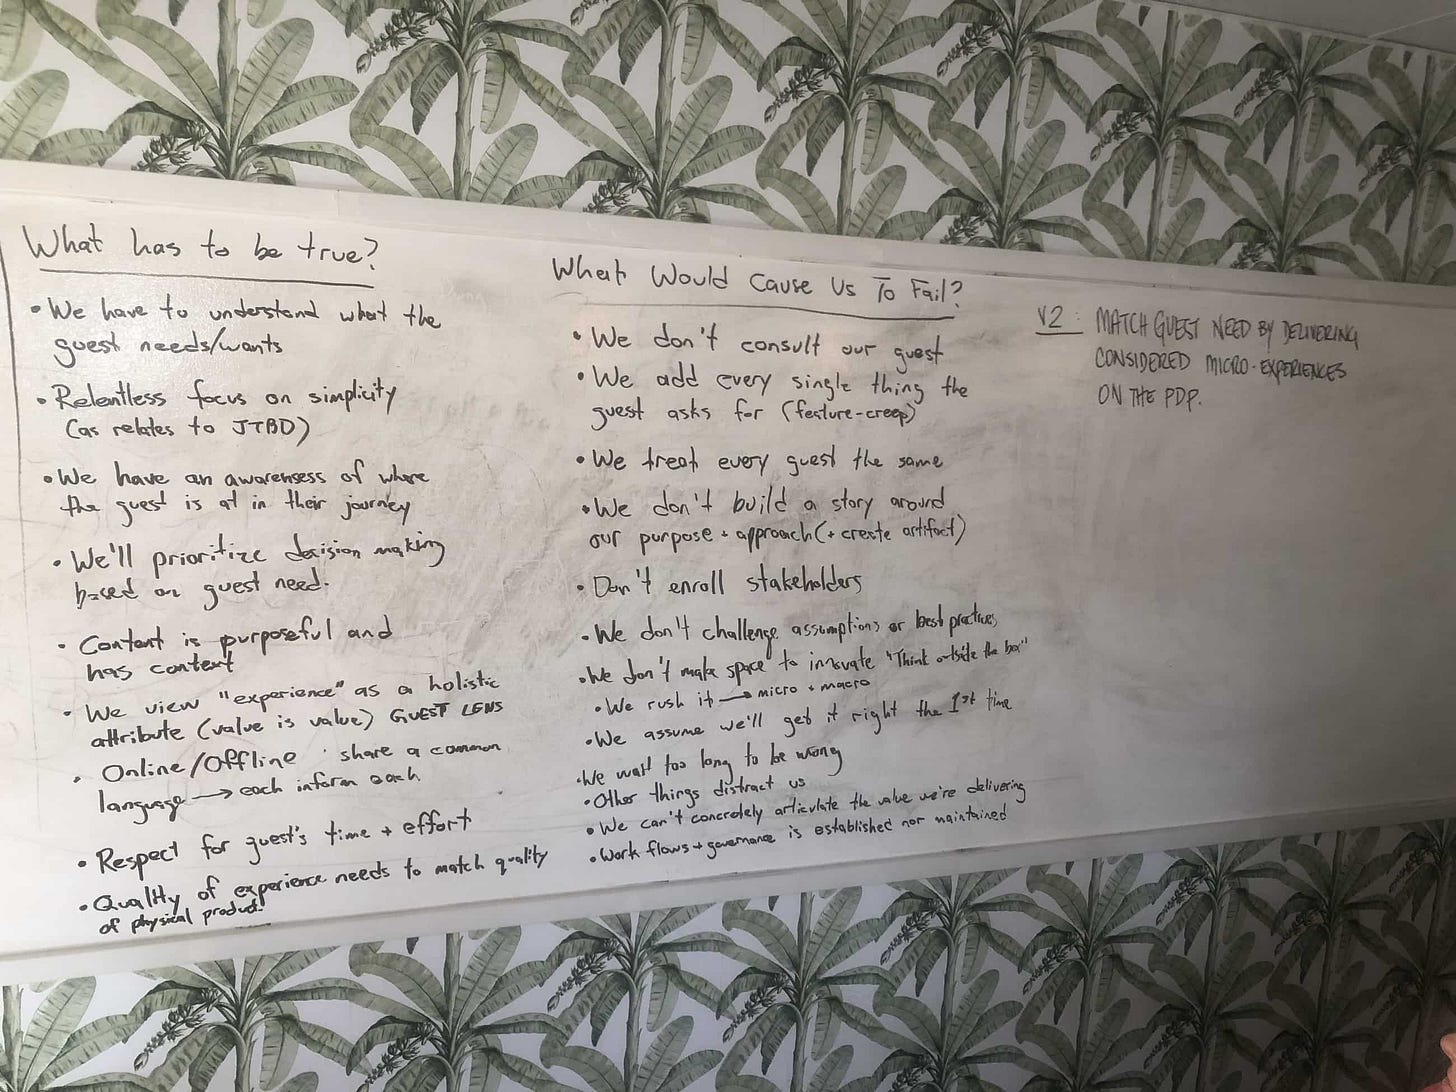 What has to be true?
• We have to understand what the
guest needs/wants
• Relentless focus on simplicity
(as relates to JTBD)
• We have an awarensess of where
the guest is at in their journey
• We'll prioritize decision making
based on guest need.
• Content is purposeful and
has context
• We view "experience" as a holistic
attribute (value is value) GUEST LENS
• Online/Offline share a common
language → each inform each
• Respect for guest's time + effort
• Quality of experience needs to match quality
of physical product.
What Would Cause Us To Fail?
• We don't consult our guest
• We add every single thing the
guest asks for (feature-creep)
• We treat every guest the same
• We don't build a story around
our purpose + approach (+ create artifact)
• Don't enroll stakeholders
• We don't challenge assumptions or best practices
• We don't make space to innovate "Think outside the box"
• We rush it → micro + macro
• We assume we'll get it right the 1st time
• We wait too long to be wrong
• Other things distract us
• We can't concretely articulate the value we're delivering
• Work flows + governance is established nor maintained
V2: MATCH GUEST NEED BY DELIVERING
CONSIDERED MICRO-EXPERIENCES
ON THE PDP.